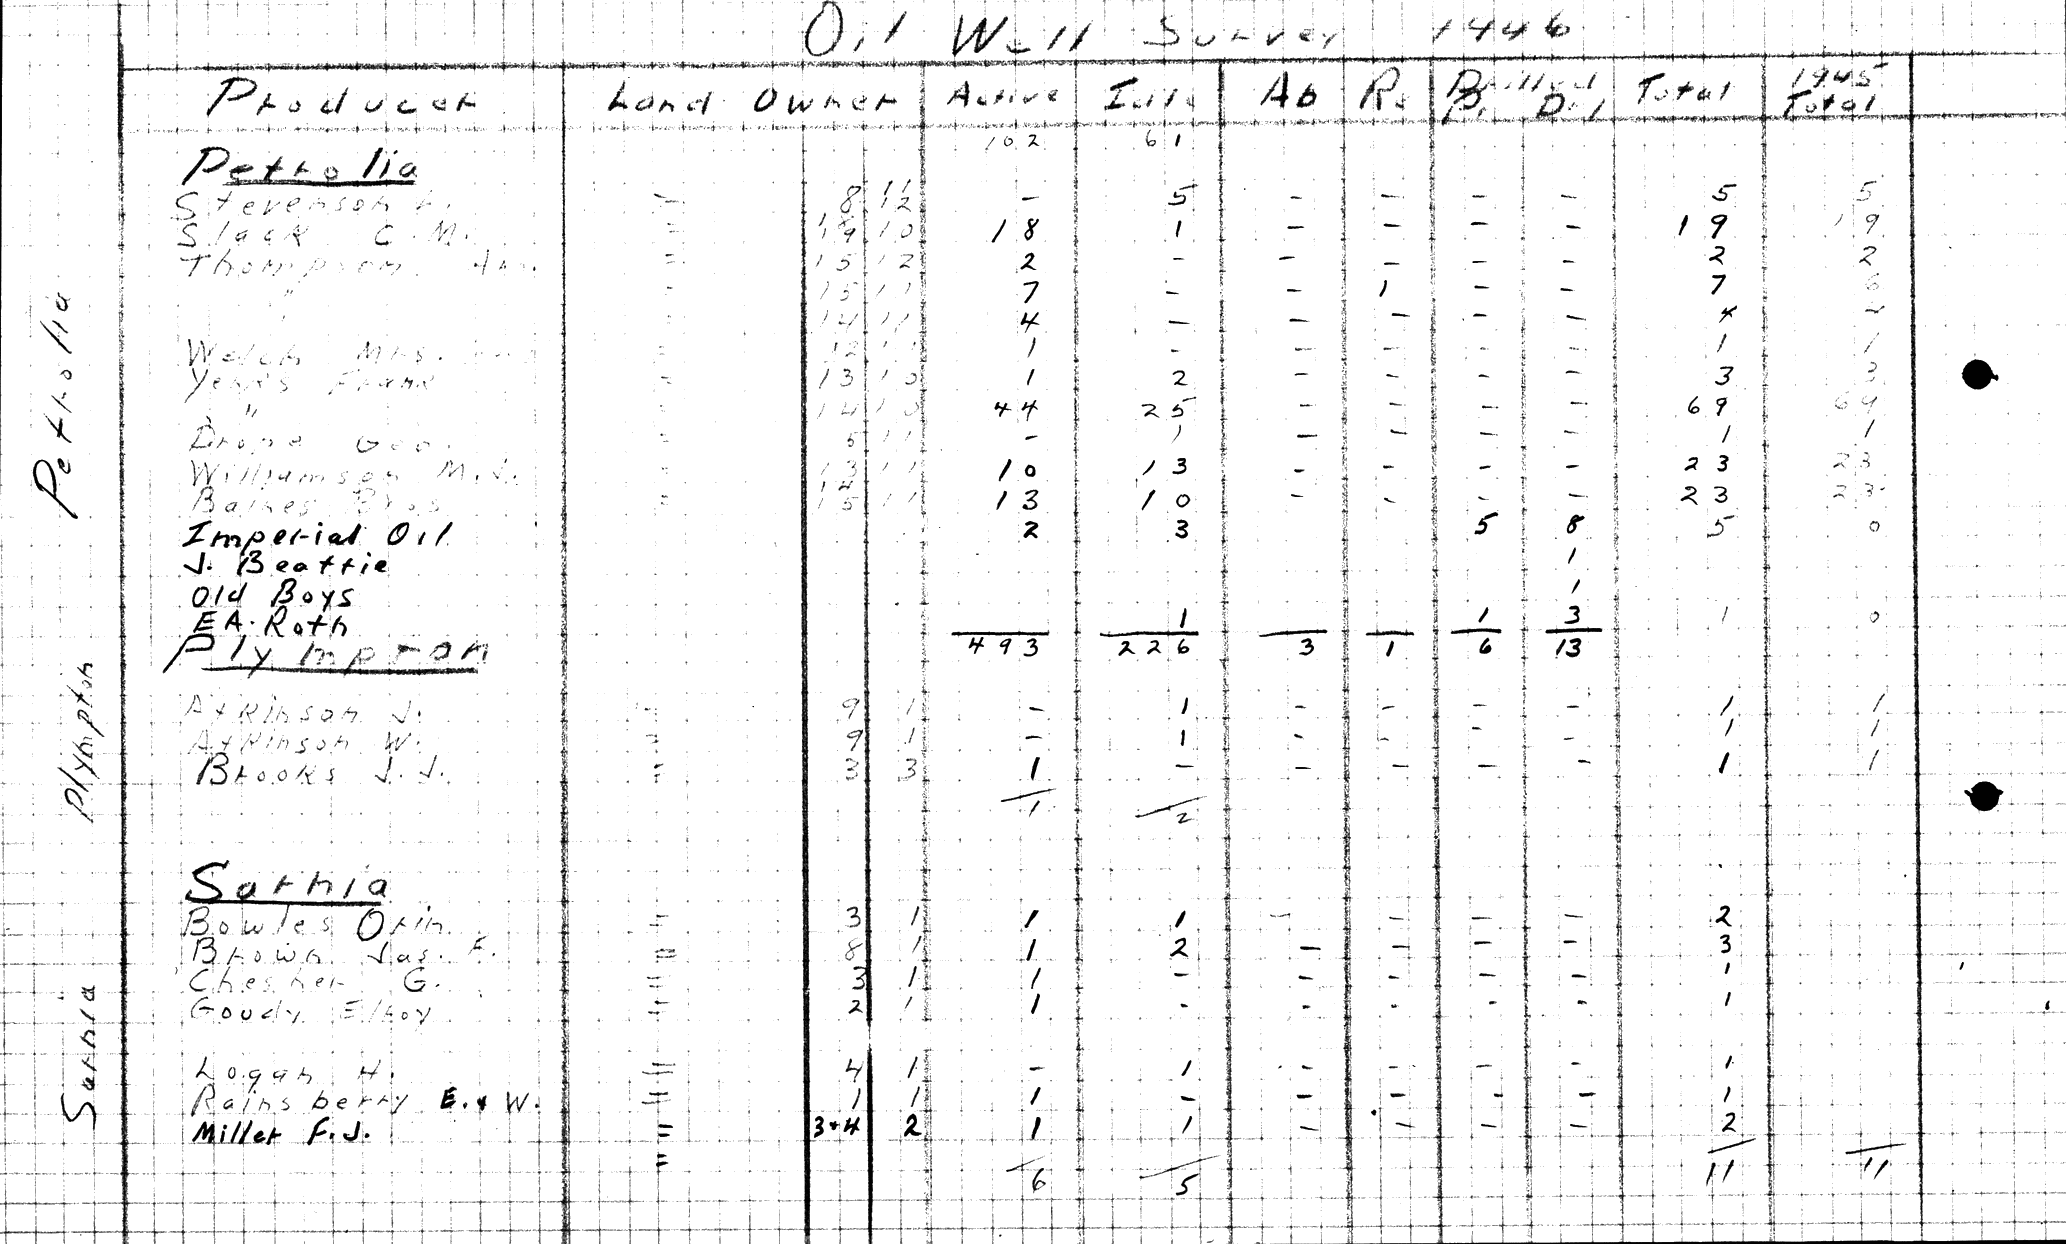 Oil Well Survey 1946
Producer Land Owner Active Idle Ab Re Drilled Pr. Dry Total 1945 Total
102 61
Petrolia
Stevenson " 8 12 - 5 - - - - 5 5
Slack C.M. " 18 19 10 18 1 - - - - 19 19
Thompson " 15 12 2 - - - - - 2 2
" " 15 11 7 - - 1 - - 7 6
" 14 11 4 - - - - - 4
Welch Mrs. " 12 1 - - - - - 1 1
Yerks Frank " 13 10 1 2 - - - - 3 3
" " 14 10 44 25 - - - - 69 69
Drope Geo. " 5 11 - 1 - - - - 1 1
Williamson M.J. " 13 11 10 13 - - - - 23 23
Baines Bros " 14 15 11 13 10 - - - - 23 23
Imperial Oil 2 3 5 8 5 0
J. Beattie 1
Old Boys 1
E.A. Roth 1 1 3 1 0
493 226 3 1 6 13
Plympton
Atkinson J. " 9 1 - 1 - - - - 1 1
Atkinson W. " 9 1 - 1 - - - - 1 1
Brooks J.J. " 3 3 1 - - - - - 1 1
1 2
Sarnia
Bowles Orin " 3 1 1 1 - - - - 2
Brown Jas. F. " 8 1 1 2 - - - - 3
Chesher G. " 3 1 1 - - - - - 1
Goudy Elroy " 2 1 1 - - - - - 1
Logan H. " 4 1 - 1 - - - - 1
Rainsberry E. & W. " 1 1 1 - - - - - 1
Miller F.J. " 3+4 2 1 1 - - - - 2
"
6 5 11 11
Petrolia
Plympton
Sarnia